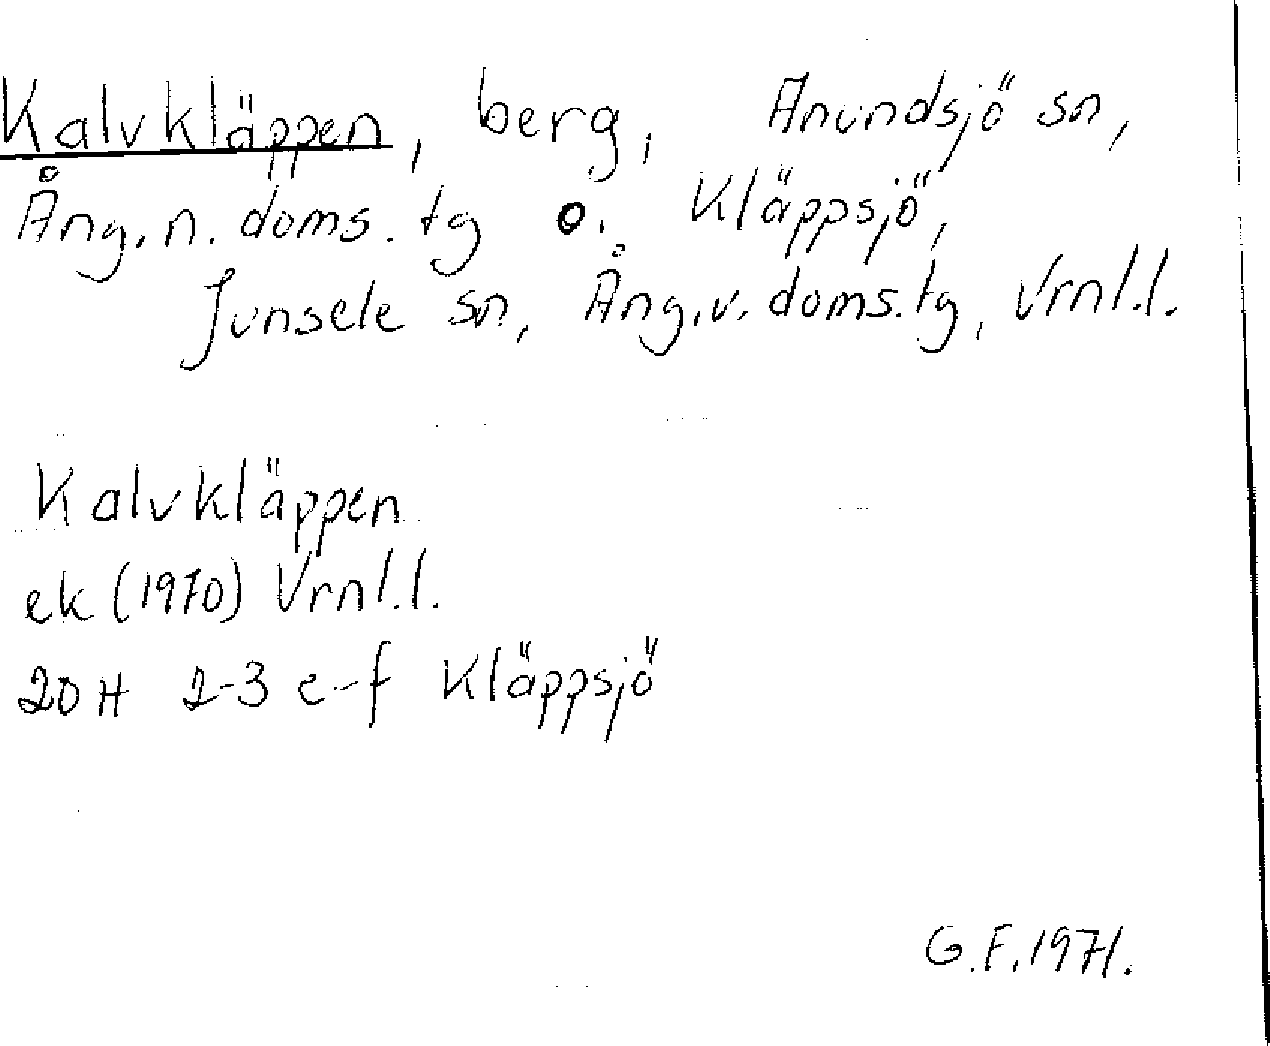 Kalvkläppen, berg, Anundsjö sn,
Ång.n. doms.tg o. Kläppsjö,
Junsele sn, Ång.v. doms.tg, Vrnl.l.
Kalvkläppen
ek (1970) Vrnl.l.
20 H 2-3 e-f Kläppsjö
G.F. 1971.